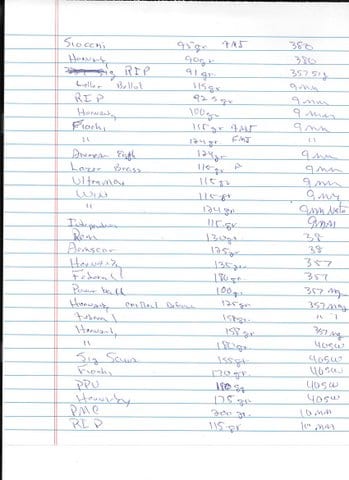 Fiocchi 95gr FMJ 380
Hornady 90gr 380
RIP 91gr 357 Sig
Bullet 115gr 9mm
RIP 92.5gr 9mm
Hornady 100gr 9mm
Fiochi 115gr FMJ 9mm
" 124gr FMJ
American Eagle 124gr 9mm
Lazer Brass 115gr 9mm
UltraMax 115gr 9mm
Win 115gr 9mm
" 124gr 9mm Nato
Independence 115gr 9mm
Rem 130gr 38
Armscor 125gr 38
Hornady 135gr 357
Federal 180gr 357
Power ball 100gr 357 Mag
Hornady Critical Defense 125gr 357 Mag
Federal 158gr " "
Hornady 158gr 357 Mag
" 180gr 40SW
Sig Sauer 155gr 40SW
Fiochi 170gr 40SW
PPU 180gr 40SW
Hornady 175gr 40SW
PMC 200gr 10mm
RIP 115gr 10mm